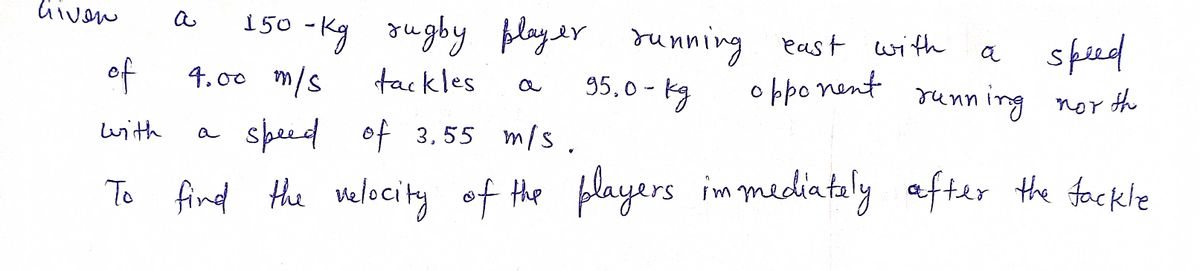 Given a 150-kg rugby player running east with a speed
of 4.00 m/s tackles a 95.0-kg opponent running north
with a speed of 3.55 m/s.
To find the velocity of the players immediately after the tackle